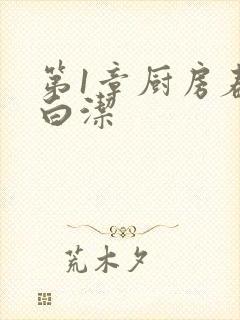 第1章厨房春
白潔
荒木夕